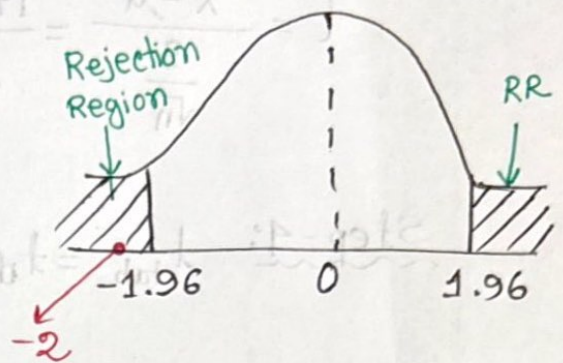 Rejection
Region
RR
-1.96
0
1.96
-2